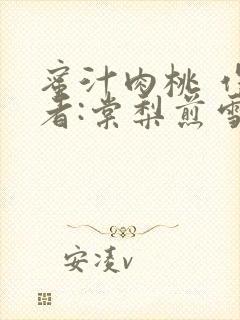 蜜汁肉桃 作
者:棠梨煎雪
安凌v